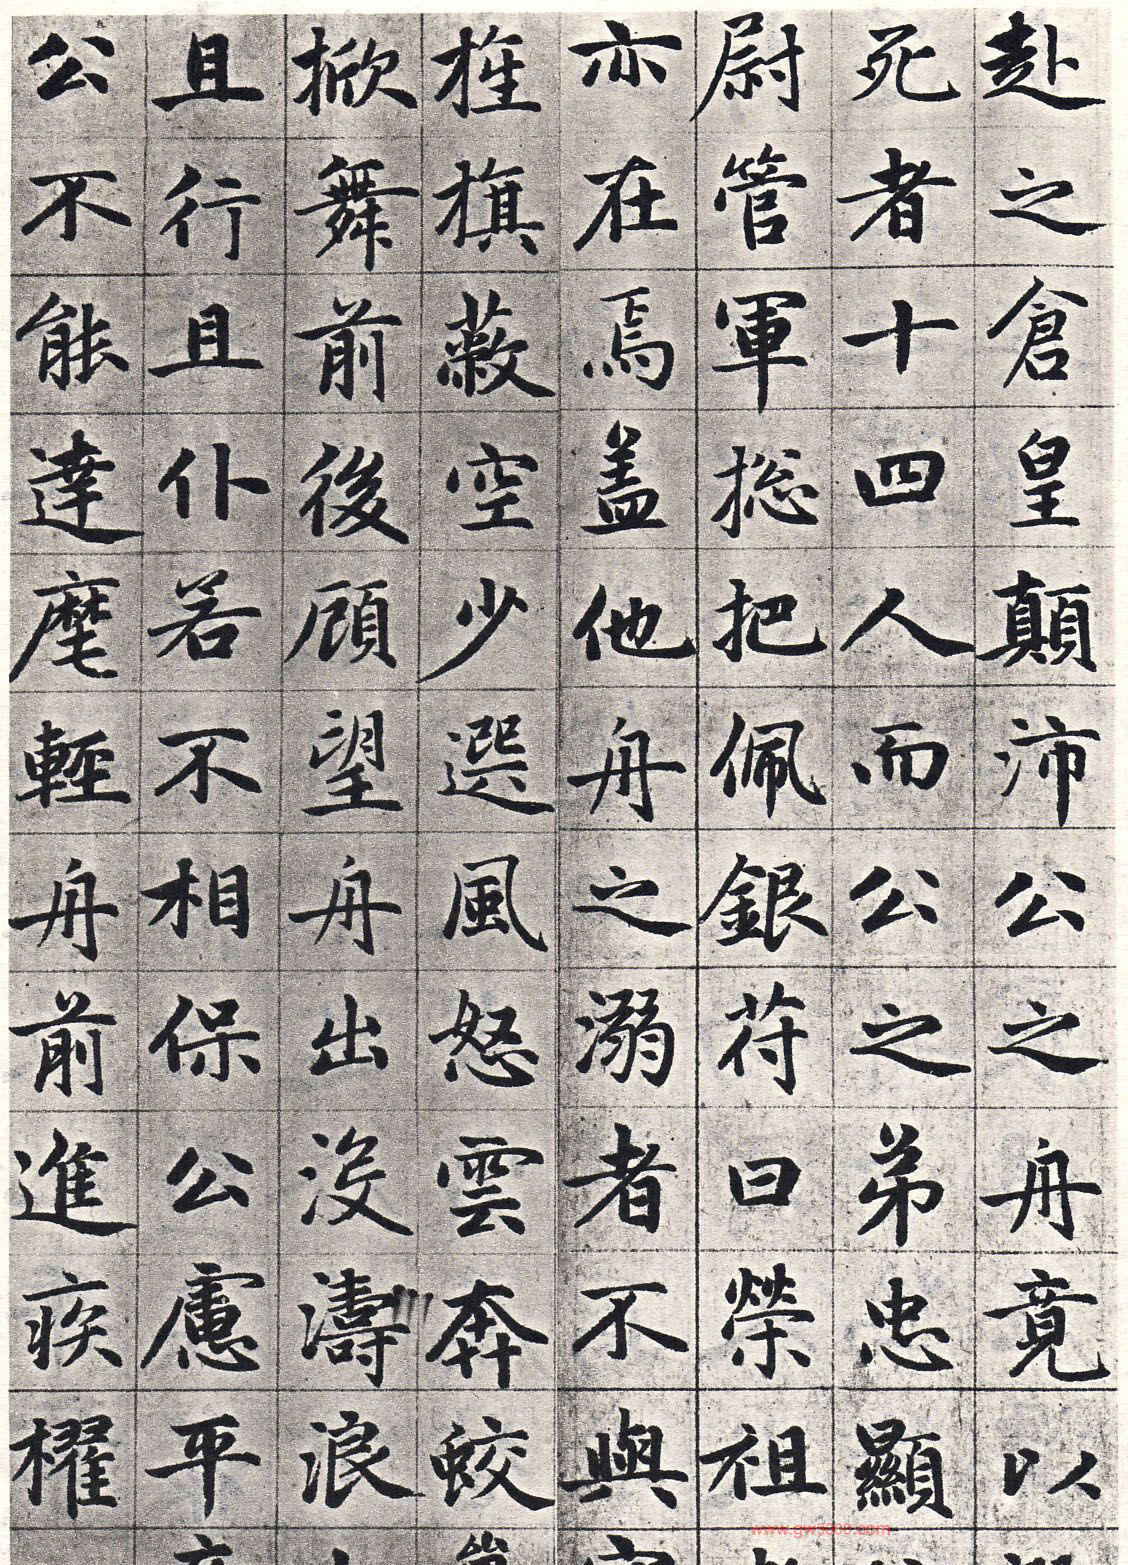 赴之倉皇顛沛公之舟竟以
死者十四人而公之弟忠顯
尉管軍揔把佩銀苻曰榮祖
亦在焉盖他舟之溺者不與
旌旗蔽空少選風怒雲奔蛟
掀舞前後顧望舟出没濤浪
且行且仆若不相保公慮平
公不能達麾輕舟前進疾櫂
www.gw5000.com